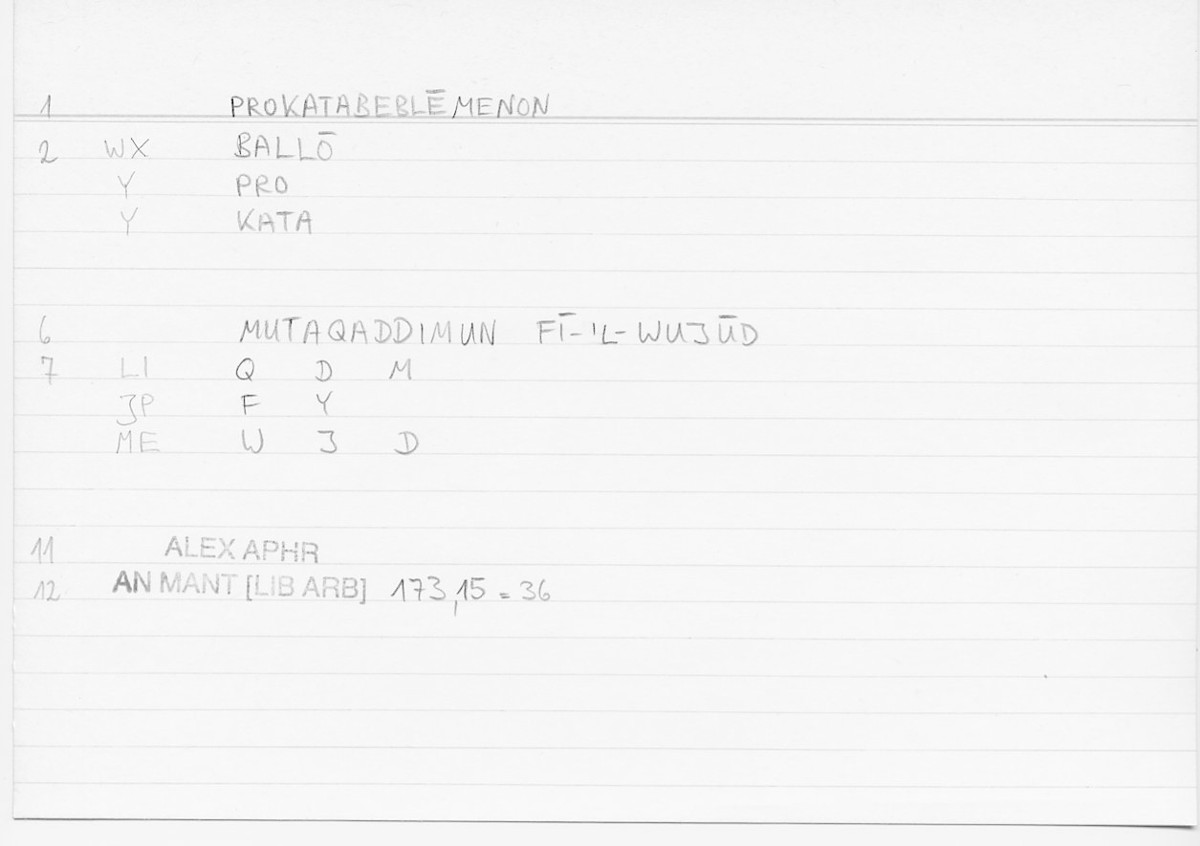 1 PROKATABEBLĒMENON
2 WX BALLŌ
Y PRO
Y KATA
6 MUTAQADDIMUN FĪ-'L-WUJŪD
7 LI Q D M
JP F Y
ME W J D
11 ALEX APHR
12 AN MANT [LIB ARB] 173,15 = 36